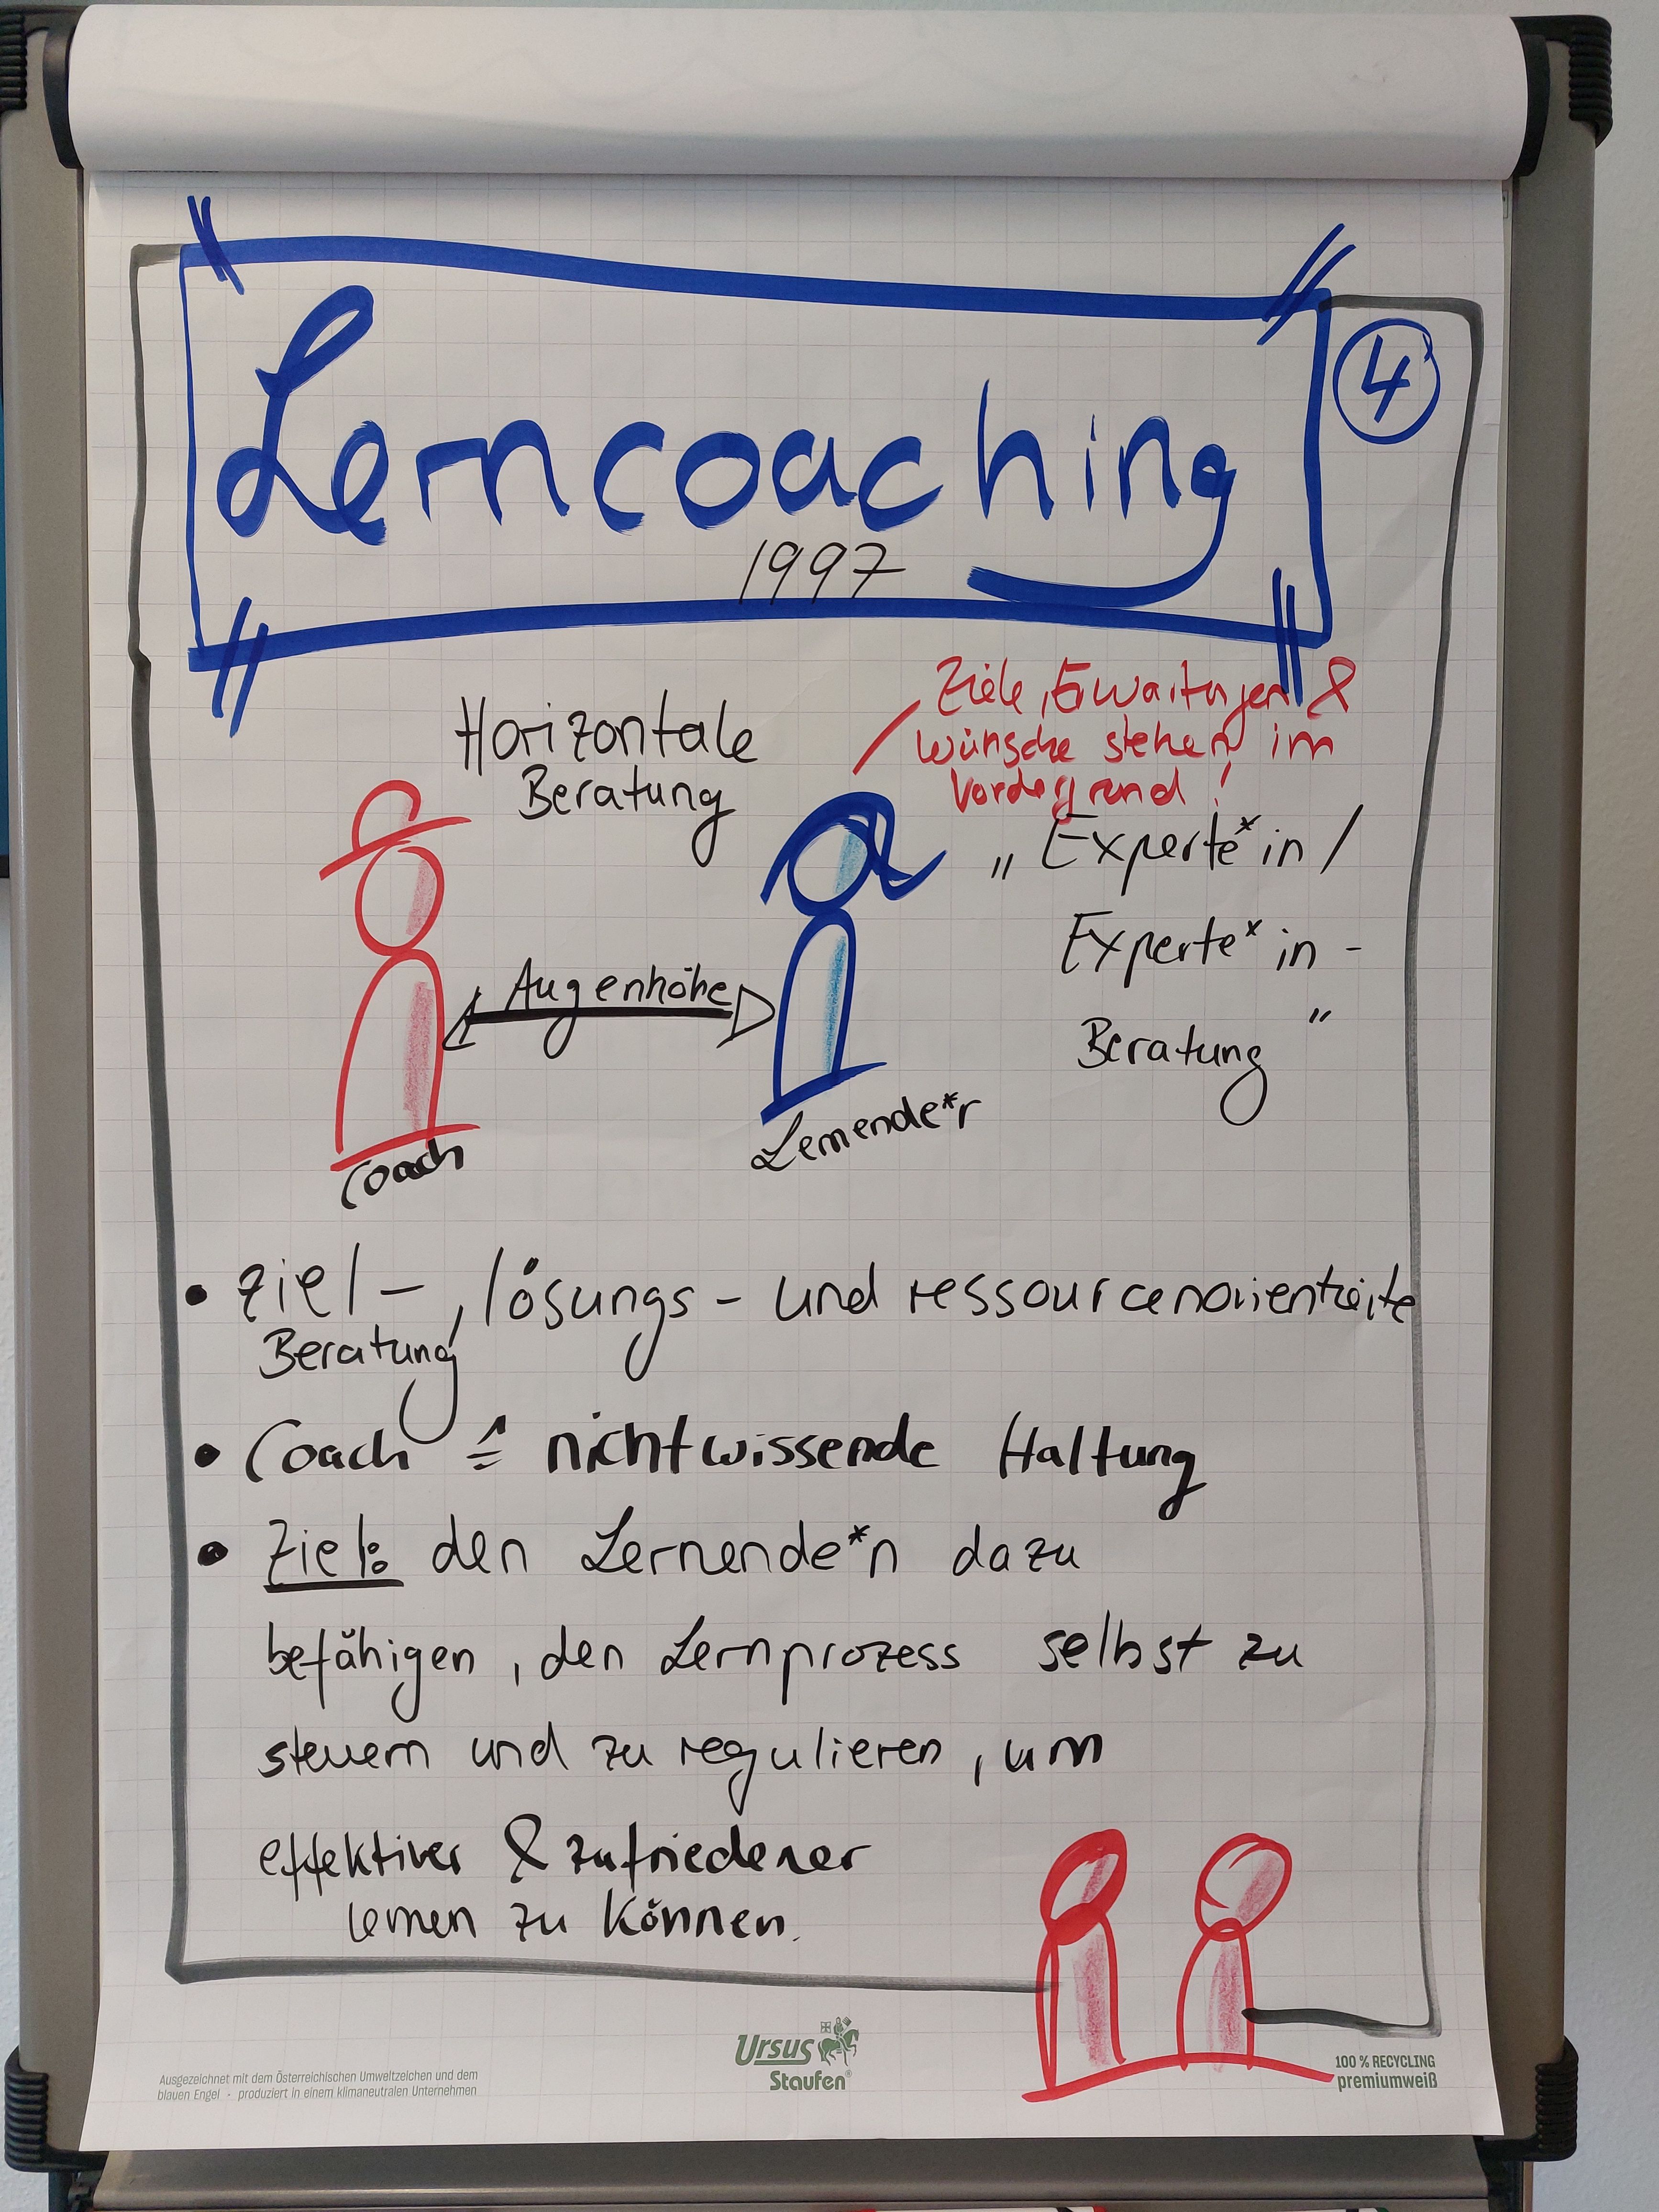 Lerncoaching
4
1997
Horizontale
Beratung
Ziele, Erwartungen &
wünsche stehen im
Vordergrund!
„Experte*in /
Experte*in -
Beratung"
Augenhöhe
Coach
Lernende*r
• Ziel-, lösungs- und ressourcenorientierte
Beratung
• Coach ≙ nichtwissende Haltung
• Ziel: den Lernende*n dazu
befähigen, den Lernprozess selbst zu
steuern und zu regulieren, um
effektiver & zufriedener
lernen zu können.
Ausgezeichnet mit dem Österreichischen Umweltzeichen und dem
blauen Engel - produziert in einem klimaneutralen Unternehmen
Ursus
Staufen®
100 % RECYCLING
premiumweiß